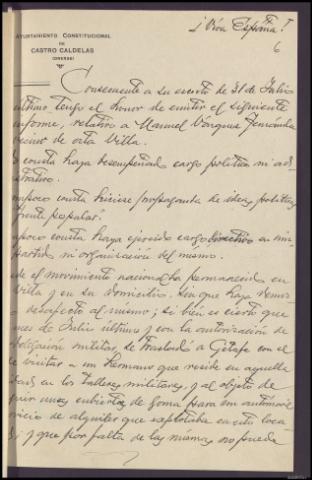 ¡Viva España!
6
AYUNTAMIENTO CONSTITUCIONAL
DE
CASTRO CALDELAS
(ORENSE)
Consecuente a su escrito de 31 de Julio
último, tengo el honor de emitir el siguiente
informe, relativo a Manuel Vázquez Fernández
vecino de esta Villa.
consta haya desempeñado cargo político ni ad-
strativo.
mpoco consta hiciese propaganda de ideas políticas
frente popular.
mpoco consta haya ejercido cargo directivo en nin
partido ni organización del mismo.
de el movimiento nacional ha permanecido en
villa y en su domicilio, sin que haya
desafecto al mismo; si bien es cierto que
mes de Julio último y con la autorización de
militar, se trasladó a Getafe con el
de visitar a un hermano que reside en aquella
en los talleres militares, y al objeto de
unas cubiertas de goma para un automóvil
vicio de alquiler que explotaba en esta loca
y que por falta de las mismas, no pueda